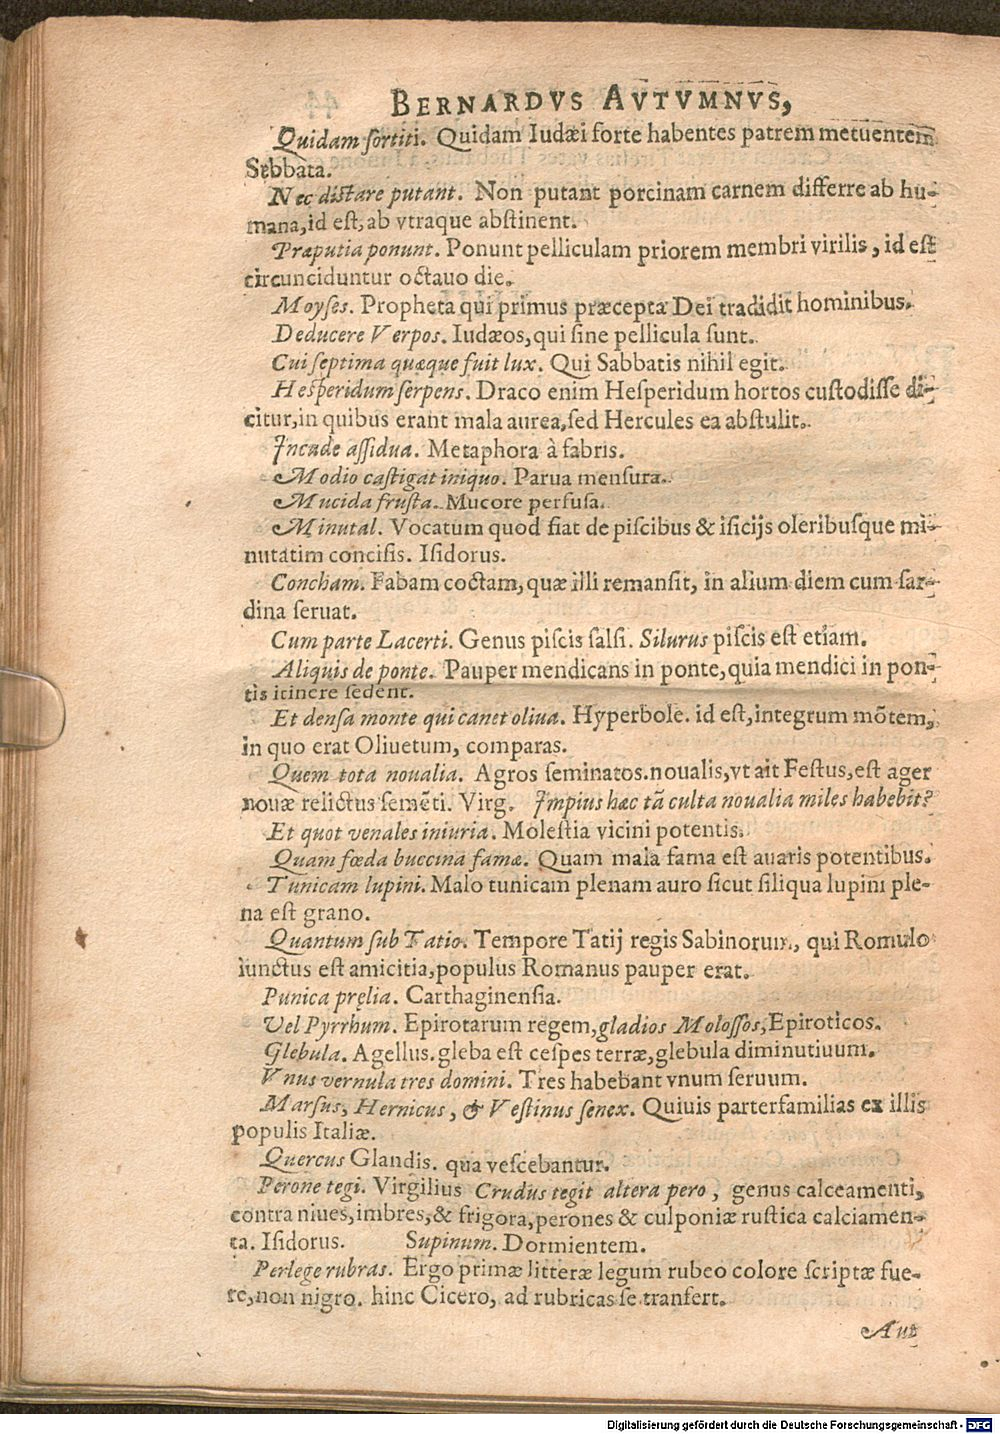 BERNARDVS AVTVMNVS,
Quidam sortiti. Quidam Iudæi forte habentes patrem metuentem
Sebbata.
Nec distare putant. Non putant porcinam carnem differre ab hu-
mana, id est, ab vtraque abstinent.
Præputia ponunt. Ponunt pelliculam priorem membri virilis, id est
circunciduntur octauo die.
Moyses. Propheta qui primus præcepta Dei tradidit hominibus.
Deducere Verpos. Iudæos, qui sine pellicula sunt.
Cui septima quæque fuit lux. Qui Sabbatis nihil egit.
Hesperidum serpens. Draco enim Hesperidum hortos custodisse di-
citur, in quibus erant mala aurea, sed Hercules ea abstulit.
Incude assidua. Metaphora à fabris.
Modio castigat iniquo. Parua mensura.
Mucida frusta. Mucore perfusa.
Minutal. Vocatum quod fiat de piscibus & isicijs oleribusque mi-
nutatim concisis. Isidorus.
Concham. Fabam coctam, quæ illi remansit, in alium diem cum sar-
dina seruat.
Cum parte Lacerti. Genus piscis salsi. Silurus piscis est etiam.
Aliquis de ponte. Pauper mendicans in ponte, quia mendici in pon-
tis itinere sedent.
Et densa monte qui canet oliua. Hyperbole. id est, integrum mõtem,
in quo erat Oliuetum, comparas.
Quem tota noualia. Agros seminatos. noualis, vt ait Festus, est ager
nouæ relictus semẽti. Virg. Impius hæc tã culta noualia miles habebit?
Et quot venales iniuria. Molestia vicini potentis.
Quam fœda buccina famæ. Quam mala fama est auaris potentibus.
Tunicam lupini. Malo tunicam plenam auro sicut siliqua lupini ple-
na est grano.
Quantum sub Tatio. Tempore Tatij regis Sabinorum, qui Romulo
iunctus est amicitia, populus Romanus pauper erat.
Punica pręlia. Carthaginensia.
Vel Pyrrhum. Epirotarum regem, gladios Molossos, Epiroticos.
Glebula. Agellus. gleba est cespes terræ, glebula diminutiuum.
Vnus vernula tres domini. Tres habebant vnum seruum.
Marsus, Hernicus, & Vestinus senex. Quiuis parterfamilias ex illis
populis Italiæ.
Quercus Glandis. qua vescebantur.
Perone tegi. Virgilius Crudus tegit altera pero, genus calceamenti,
contra niues, imbres, & frigora, perones & culponiæ rustica calciamen-
ta. Isidorus. Supinum. Dormientem.
Perlege rubras. Ergo primæ litteræ legum rubeo colore scriptæ fue-
re, non nigro. hinc Cicero, ad rubricas se tranfert.
Aut
Digitalisierung gefördert durch die Deutsche Forschungsgemeinschaft - DFG